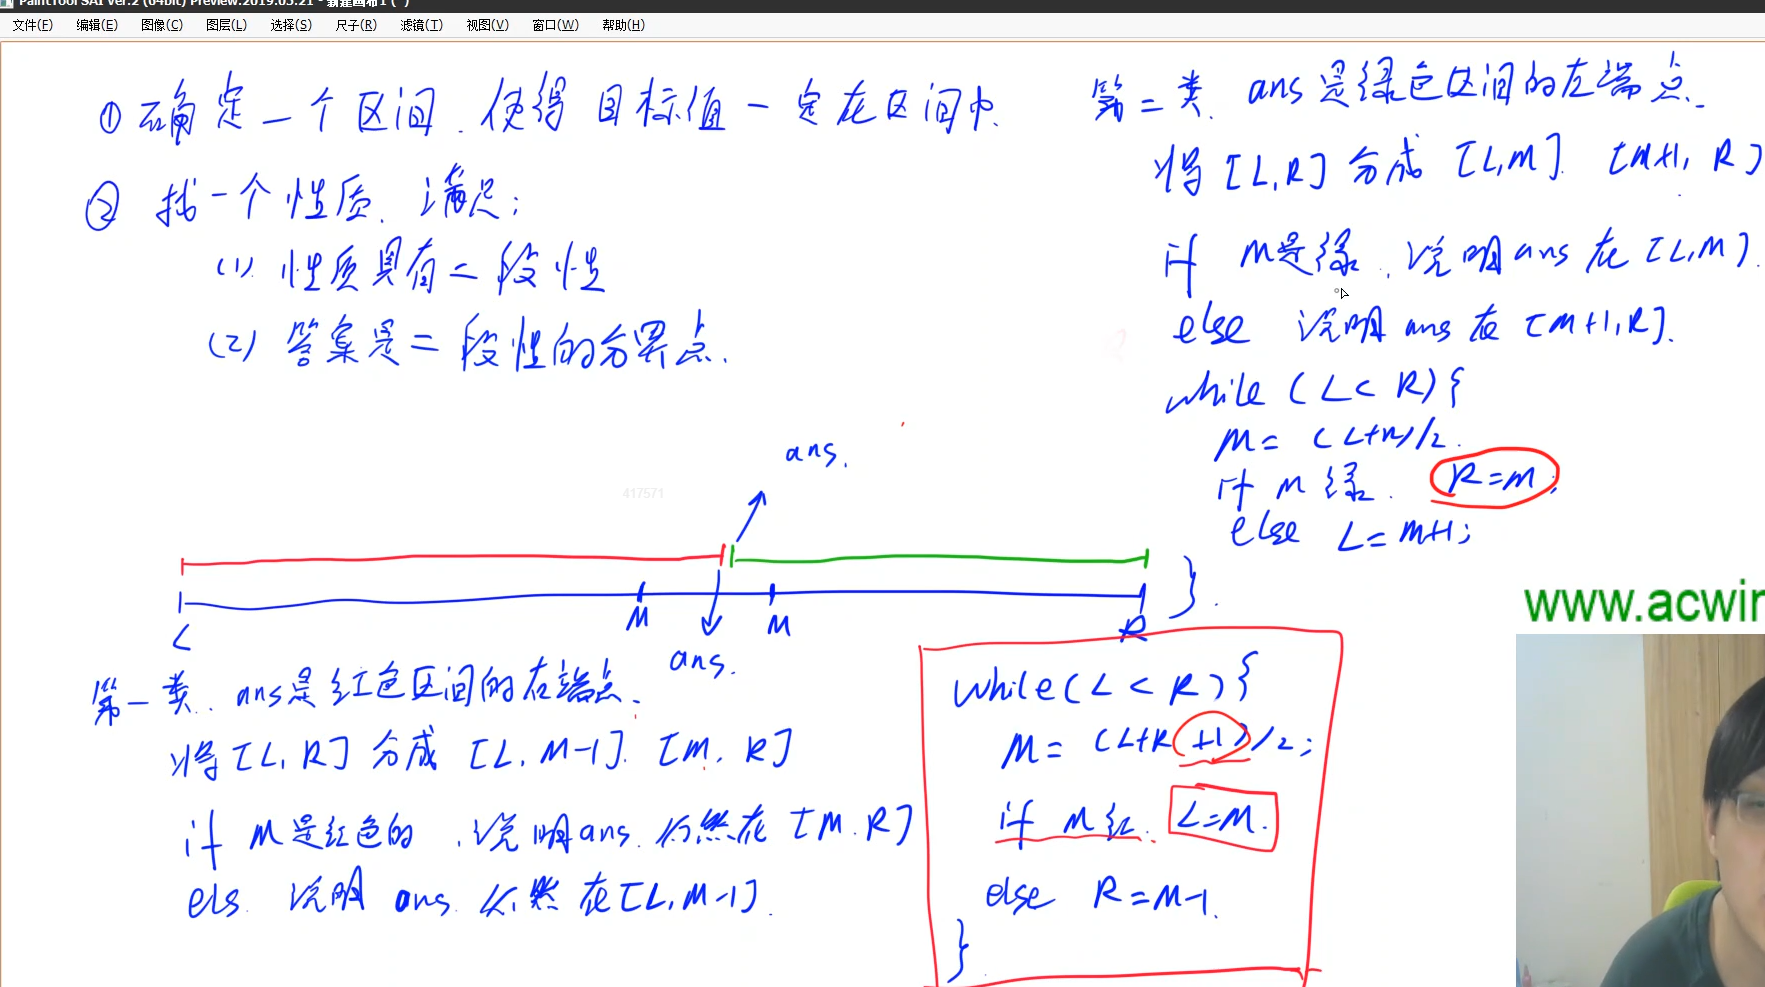 PaintTool SAI Ver.2 (64bit) Preview.2019.05.21 - 新建画布1 (*)
文件(F) 编辑(E) 图像(C) 图层(L) 选择(S) 尺子(R) 滤镜(T) 视图(V) 窗口(W) 帮助(H)
① 确定一个区间，使得目标值一定在区间中.
② 找一个性质，满足:
(1) 性质具有二段性
(2) 答案是二段性的分界点.
ans.
417571
L
M
M
R
ans.
第一类. ans是红色区间的右端点.
将[L, R]分成[L, M-1]. [M, R]
if M是红色的, 说明ans 仍然在[M, R]
els 说明 ans 仍然在[L, M-1].
第二类. ans是绿色区间的左端点.
将[L, R]分成[L, M]. [M+1, R]
if M是绿, 说明ans在[L, M].
else 说明ans在[M+1, R].
while (L < R) {
M = (L+R)/2.
if M 绿. R=M;
else L = M+1;
}.
while (L < R) {
M = (L+R+1)/2;
if M 红. L=M.
else R=M-1.
}
www.acwin